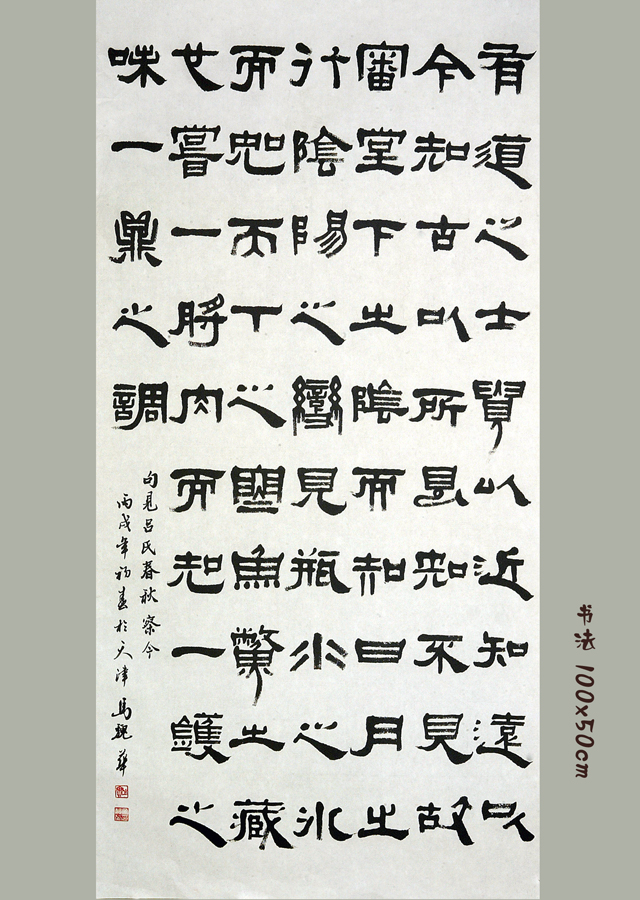 有道之士貴以近知遠以
今知古以所見知不見故
審堂下之陰而知日月之
行陰陽之變見瓶水之冰
而知天下之寒魚鱉之藏
也嘗一脟肉而知一鑊之
味一鼎之調
句見呂氏春秋察今
丙戌年初春於天津馬魏華
书法 100x50cm